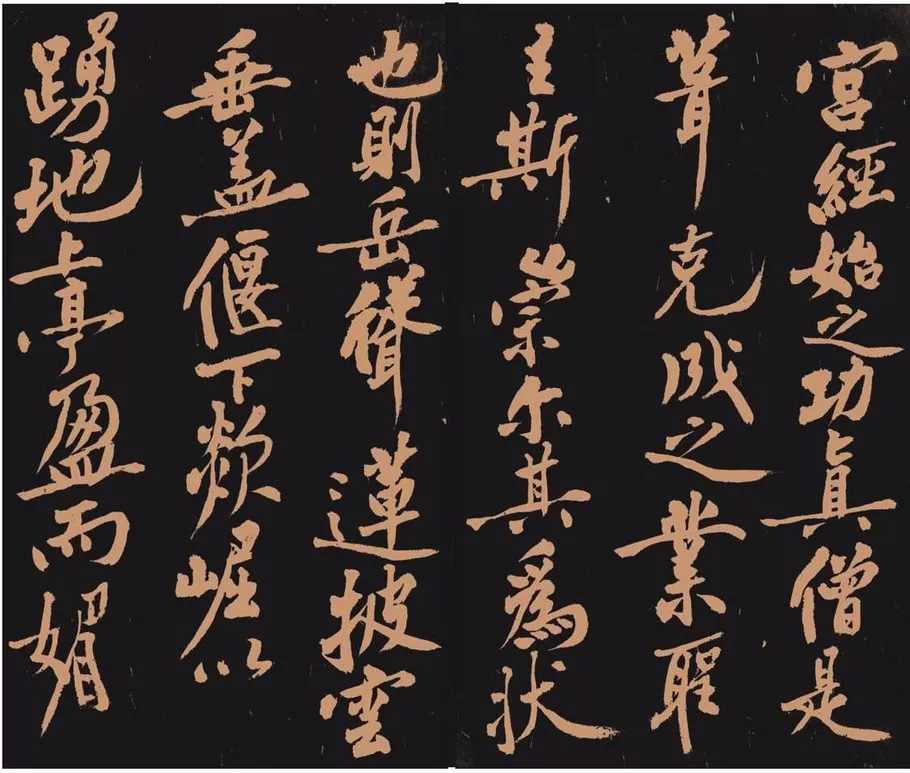 宮經始之功真僧是
葺克成之業聖
主斯崇尔其為狀
也則岳聳蓮披雲
垂盖偃下欻崛以
踴地上亭盈而媚